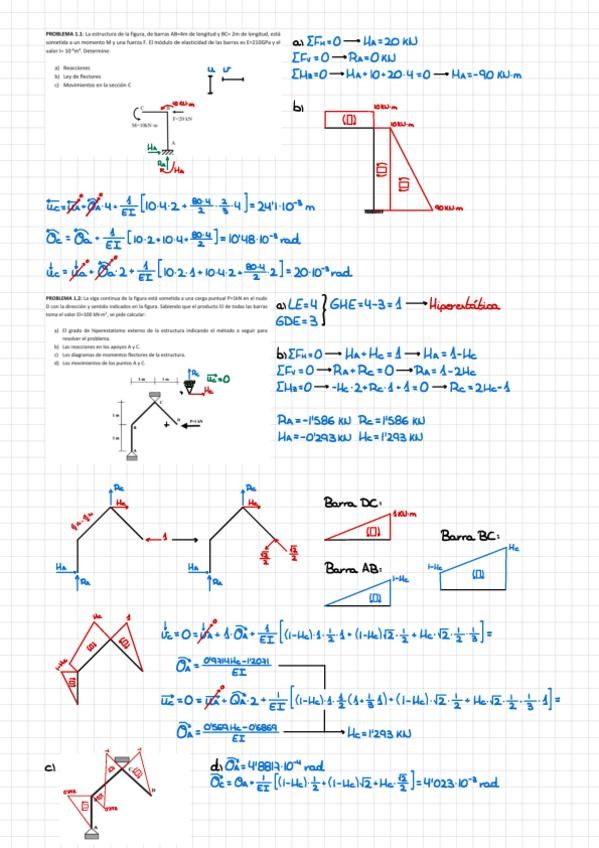 PROBLEMA 1.1: La estructura de la figura, de barras AB=4m de longitud y BC= 2m de longitud, está
sometida a un momento M y una fuerza F. El módulo de elasticidad de las barras es E=210GPa y el
valor I= 10⁻⁵m⁴. Determine:
a) Reacciones
b) Ley de flectores
c) Movimientos en la sección C
a) ΣFH=0 → HA=20 KN
ΣFV=0 → RA=0KN
ΣHB=0 → MA+10+20·4=0 → MA=-90 KN·m
u v
10 KN·m
C
M=10kN·m
F=20 kN
A
HA
RA
MA
b)
10KN·m
10KN·m
90KN·m
uC=uA+ΘA·4+1/EI[10·4·2+80·4/2·2/3·4]=24'1·10⁻³ m
ΘC=ΘA+1/EI[10·2+10·4+80·4/2]=10'48·10⁻³ rad
uC=uA+ΘA·2+1/EI[10·2·1+10·4·2+80·4/2·2]=20·10⁻³ rad
PROBLEMA 1.2: La viga continua de la figura está sometida a una carga puntual P=1kN en el nudo
D con la dirección y sentido indicados en la figura. Sabiendo que el producto EI de todas las barras
toma el valor EI=100 kN·m², se pide calcular:
a) El grado de hiperestatismo externo de la estructura indicando el método a seguir para
resolver el problema.
b) Las reacciones en los apoyos A y C.
c) Los diagramas de momentos flectores de la estructura.
d) Los movimientos de los puntos A y C.
a) LE=4
GDE=3
GHE=4-3=1 → Hiperestática
b) ΣFH=0 → HA+HC=1 → HA=1-HC
ΣFV=0 → RA+RC=0 → RA=1-2HC
ΣHB=0 → -HC·2+RC·1+1=0 → RC=2HC-1
RA=-1'586 KN RC=1'586 KN
HA=-0'293 KN HC=1'293 KN
1 m 1 m
RC
HC
uC=0
C
1 m
B
D
P=1 kN
1 m
A
RC
HC
1
HA
RA
RC
HC
HA
RA
Barra DC:
1KN·m
Barra AB:
1-HC
Barra BC:
1-HC
HC
HC
1
1-HC
uC=0=uA+1·ΘA+1/EI[(1-HC)·1·1/2·1+(1-HC)√2·1/2+HC·√2·1/2·1/3]=
ΘA=0'9714HC-1'2071/EI
uC=0=uA+ΘA·2+1/EI[(1-HC)·1·1/2(1+1/3·1)+(1-HC)·√2·1/2+HC·√2·1/2·1/3·1]=
ΘA=0'569HC-0'6869/EI
HC=1'293 KN
c)
C
D
A
d) ΘA=4'8817·10⁻⁴ rad
ΘC=ΘA+1/EI[(1-HC)·1/2+(1-HC)√2+HC·√2/2]=4'023·10⁻³ rad